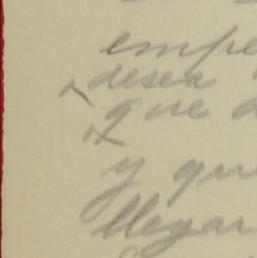 empe
desea
que d
y qu
llegar